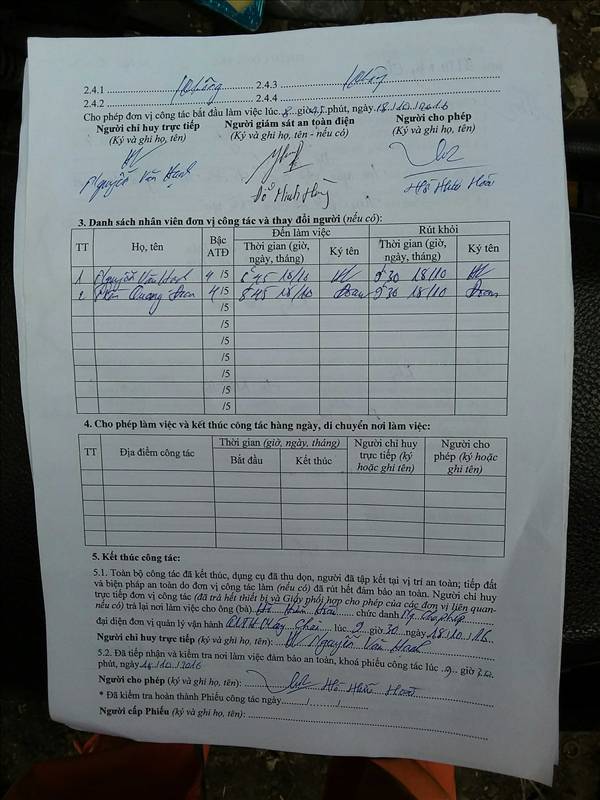 2.4.1 Không 2.4.3 Không
2.4.2 2.4.4
Cho phép đơn vị công tác bắt đầu làm việc lúc 8 giờ 45 phút, ngày 18/10/2016
Người chỉ huy trực tiếp Người giám sát an toàn điện Người cho phép
(Ký và ghi họ, tên) (Ký và ghi họ, tên - nếu có) (Ký và ghi họ, tên)
Nguyễn Văn Hạnh Đỗ Minh Hùng Hồ Hữu
3. Danh sách nhân viên đơn vị công tác và thay đổi người (nếu có):
TT Họ, tên Bậc ATĐ Đến làm việc Rút khỏi
Thời gian (giờ, ngày, tháng) Ký tên Thời gian (giờ, ngày, tháng) Ký tên
1 Nguyễn Văn Hạnh 4 /5 8h45 18/10 9h30 18/10
2 Quang Đoan 4 /5 8h45 18/10 Đoan 9h30 18/10 Đoan
/5
/5
/5
/5
/5
/5
4. Cho phép làm việc và kết thúc công tác hàng ngày, di chuyển nơi làm việc:
TT Địa điểm công tác Thời gian (giờ, ngày, tháng) Người chỉ huy trực tiếp (ký hoặc ghi tên) Người cho phép (ký hoặc ghi tên)
Bắt đầu Kết thúc
5. Kết thúc công tác:
5.1. Toàn bộ công tác đã kết thúc, dụng cụ đã thu dọn, người đã tập kết tại vị trí an toàn; tiếp đất
và biện pháp an toàn do đơn vị công tác làm (nếu có) đã rút hết đảm bảo an toàn. Người chỉ huy
trực tiếp đơn vị công tác (đã trả hết thiết bị và Giấy phối hợp cho phép của các đơn vị liên quan-
nếu có) trả lại nơi làm việc cho ông (bà) Hồ Hữu chức danh Ng cho phép
đại diện đơn vị quản lý vận hành lúc 9 giờ 30 ngày 18/10/16
Người chỉ huy trực tiếp (ký và ghi họ, tên): Nguyễn Văn Hạnh
5.2. Đã tiếp nhận và kiểm tra nơi làm việc đảm bảo an toàn, khoá phiếu công tác lúc 9 giờ 30
phút, ngày 18/10/2016
Người cho phép (ký và ghi họ, tên): Hồ Hữu
* Đã kiểm tra hoàn thành Phiếu công tác ngày / /
Người cấp Phiếu (ký và ghi họ, tên):